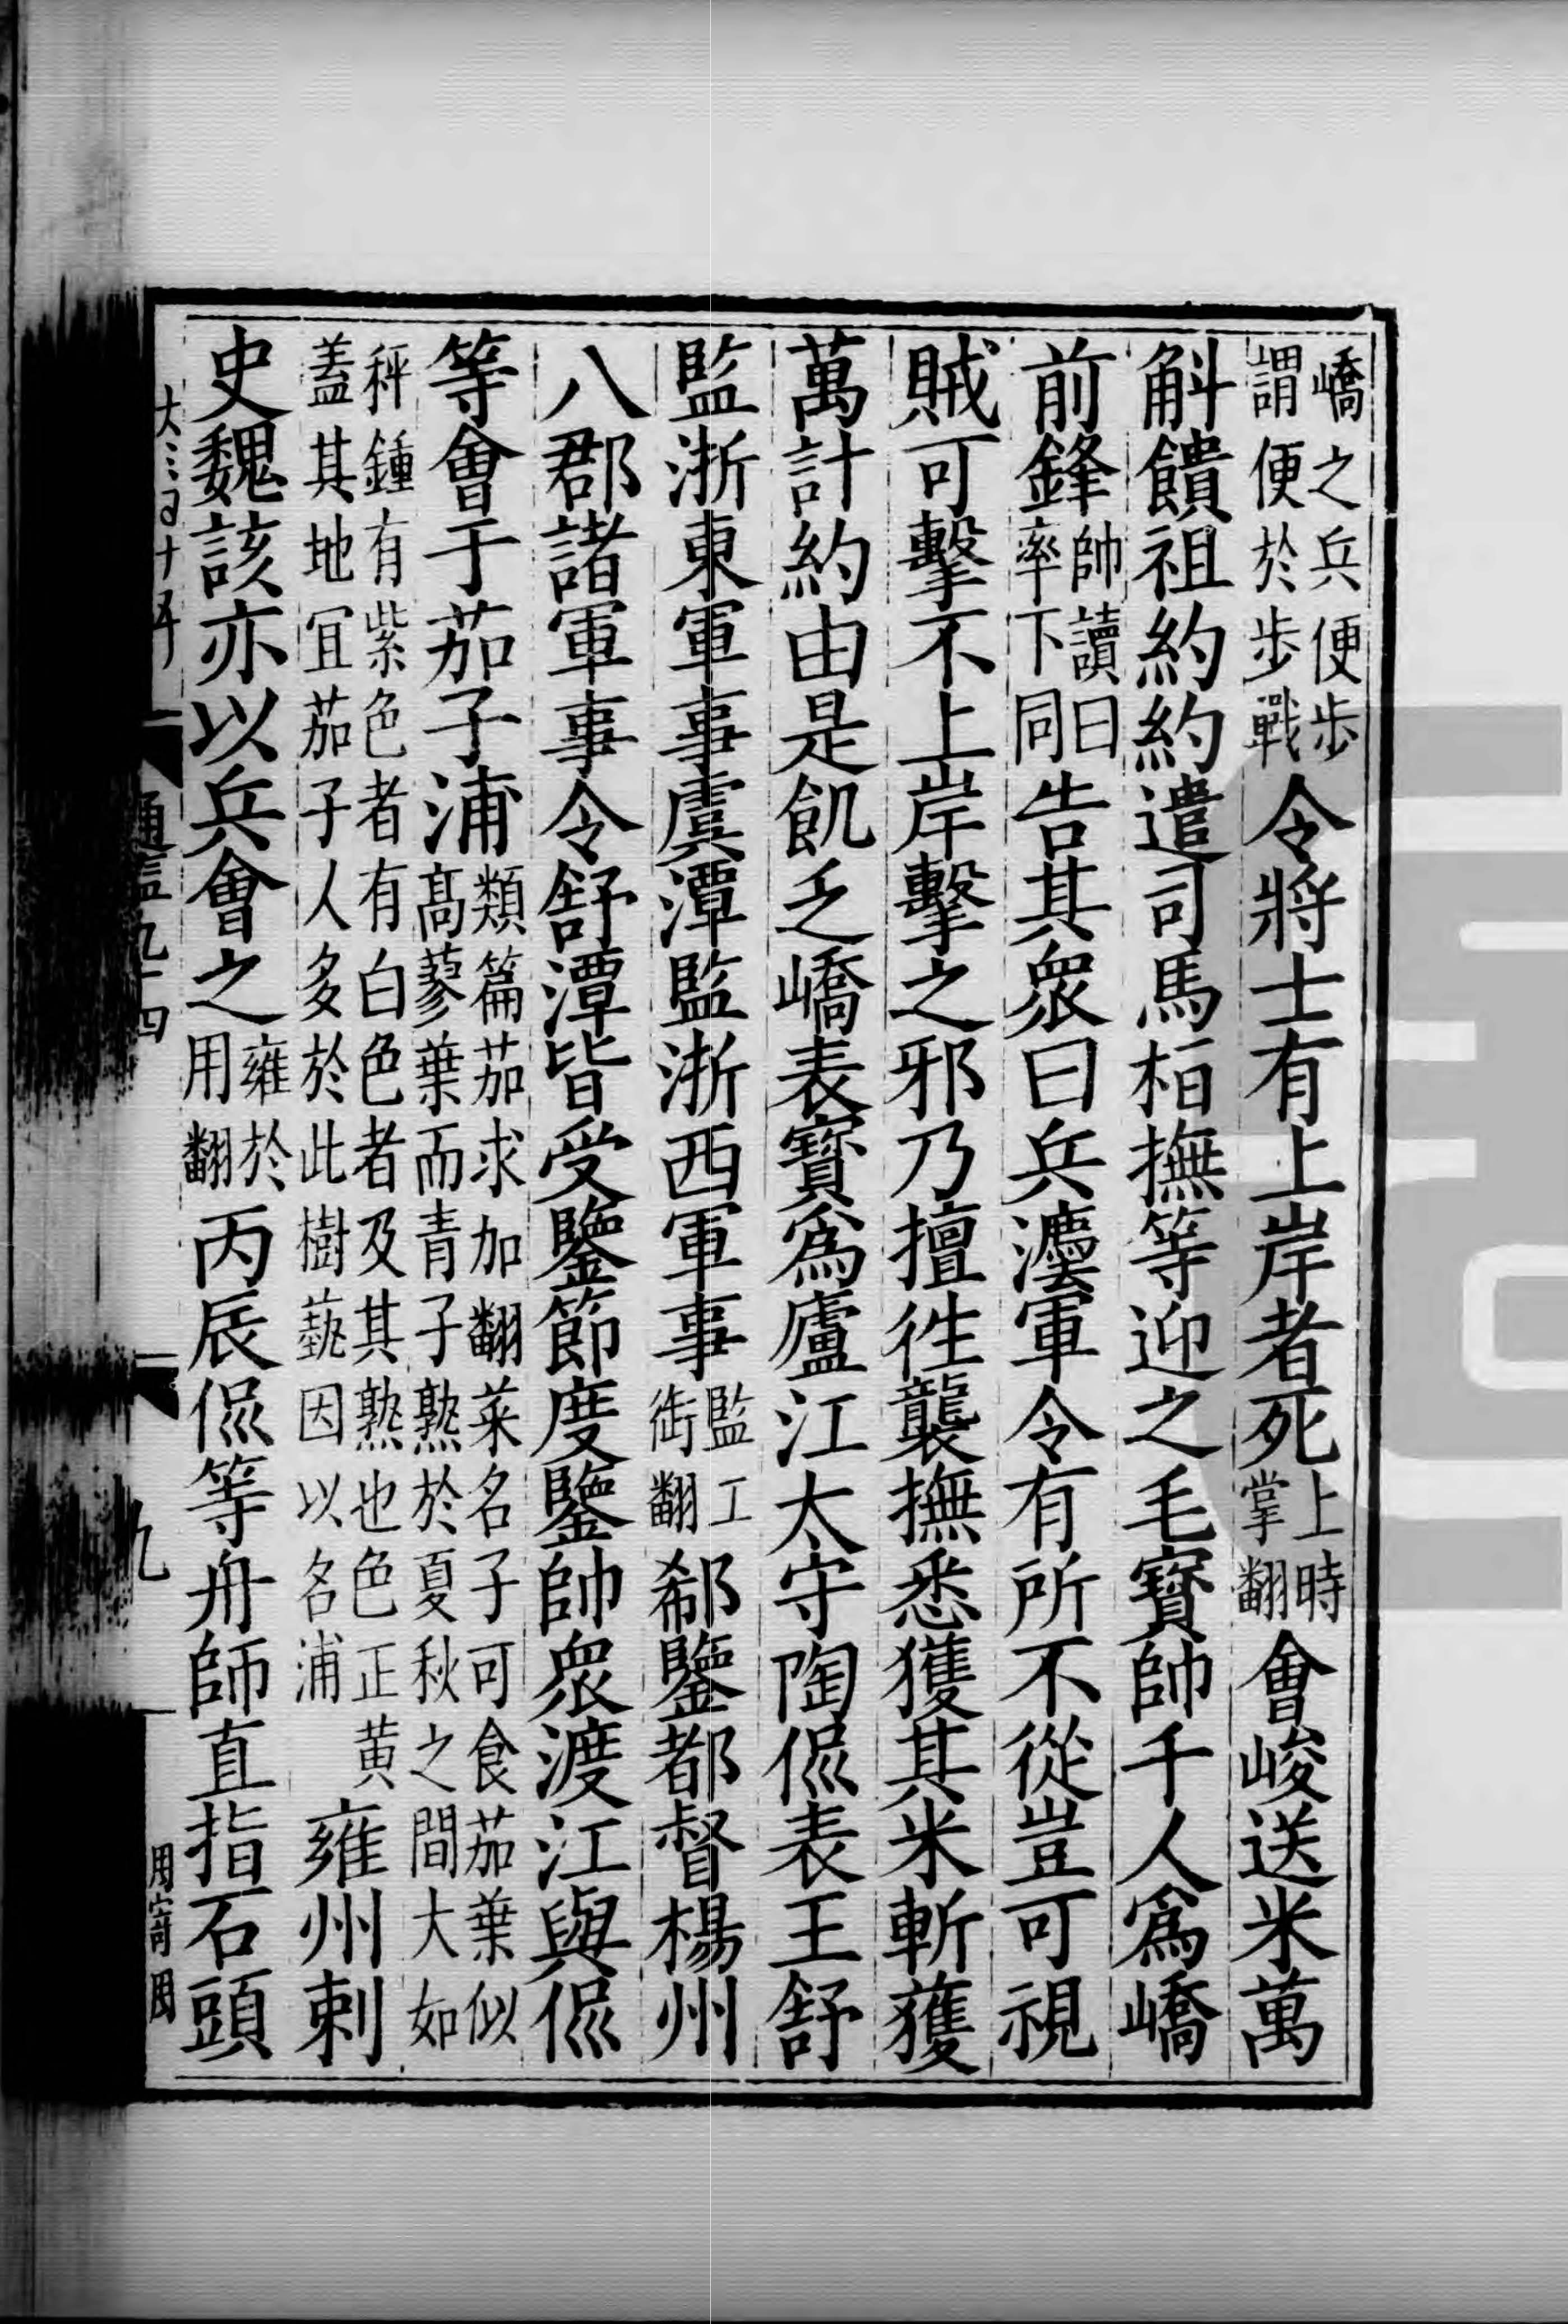 嶠之兵便歩謂便於歩戰令將士有上岸者死上時掌翻會峻送米萬
斛饋祖約約遣司馬桓撫等迎之毛寶帥千人爲嶠
前鋒帥讀曰率下同告其衆曰兵灋軍令有所不從豈可視
賊可擊不上岸擊之邪乃擅徃襲撫悉獲其米斬獲
萬計約由是飢乏嶠表寶爲廬江太守陶侃表王舒
監浙東軍事虞潭監浙西軍事監工銜翻郗鑒都督楊州
八郡諸軍事令舒潭皆受鑒節度鑒帥衆渡江與侃
等會于茄子浦類篇茄求加翻菜名子可食茄葉似高蓼葉而青子熟於夏秋之間大如
秤錘有紫色者有白色者及其熟也色正黄盖其地宜茄子人多於此樹蓺因以名浦雍州刺
史魏該亦以兵會之雍於用翻丙辰侃等舟師直指石頭